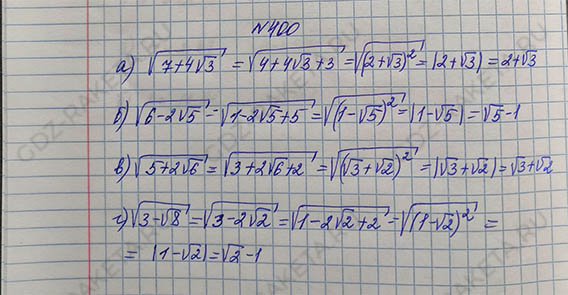 №400
а) √(7+4√3) = √(4+4√3+3) = √((2+√3)²) = |2+√3| = 2+√3
б) √(6-2√5) = √(1-2√5+5) = √((1-√5)²) = |1-√5| = √5-1
в) √(5+2√6) = √(3+2√6+2) = √((√3+√2)²) = |√3+√2| = √3+√2
г) √(3-√8) = √(3-2√2) = √(1-2√2+2) = √((1-√2)²) =
= |1-√2| = √2-1
GDZ-RAKETA.RU